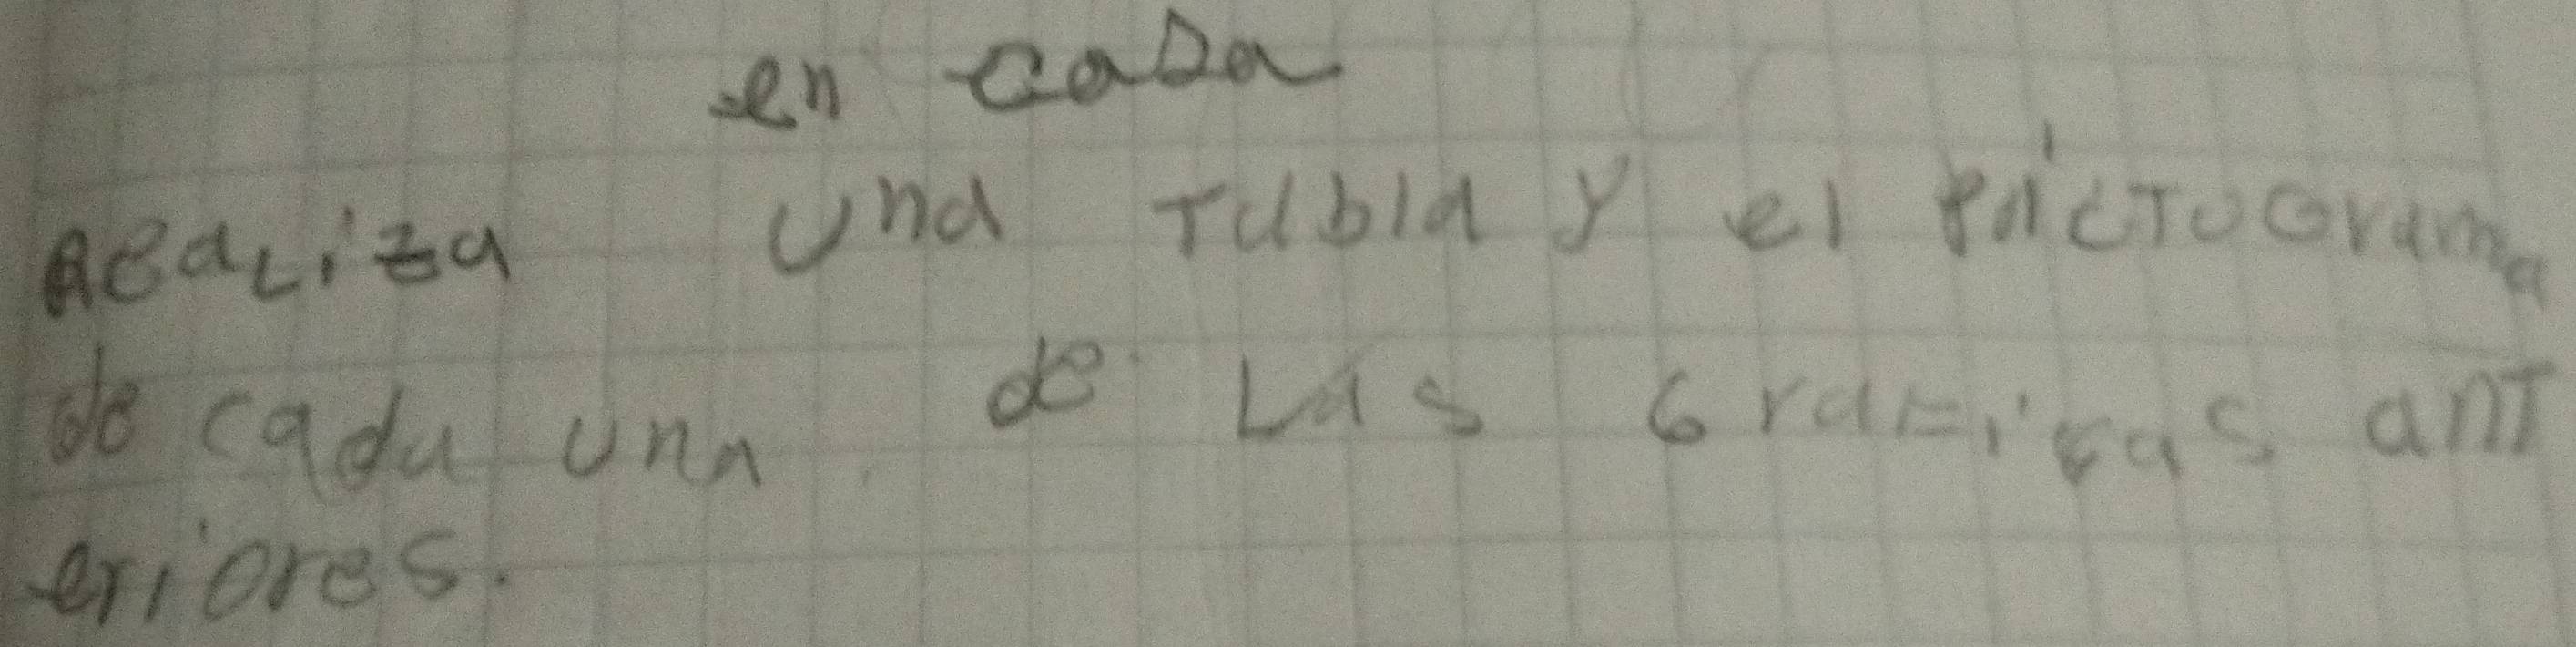 en casa
Realiza una tabla y el pictograma
de cada una de las graficas ant
eriores.